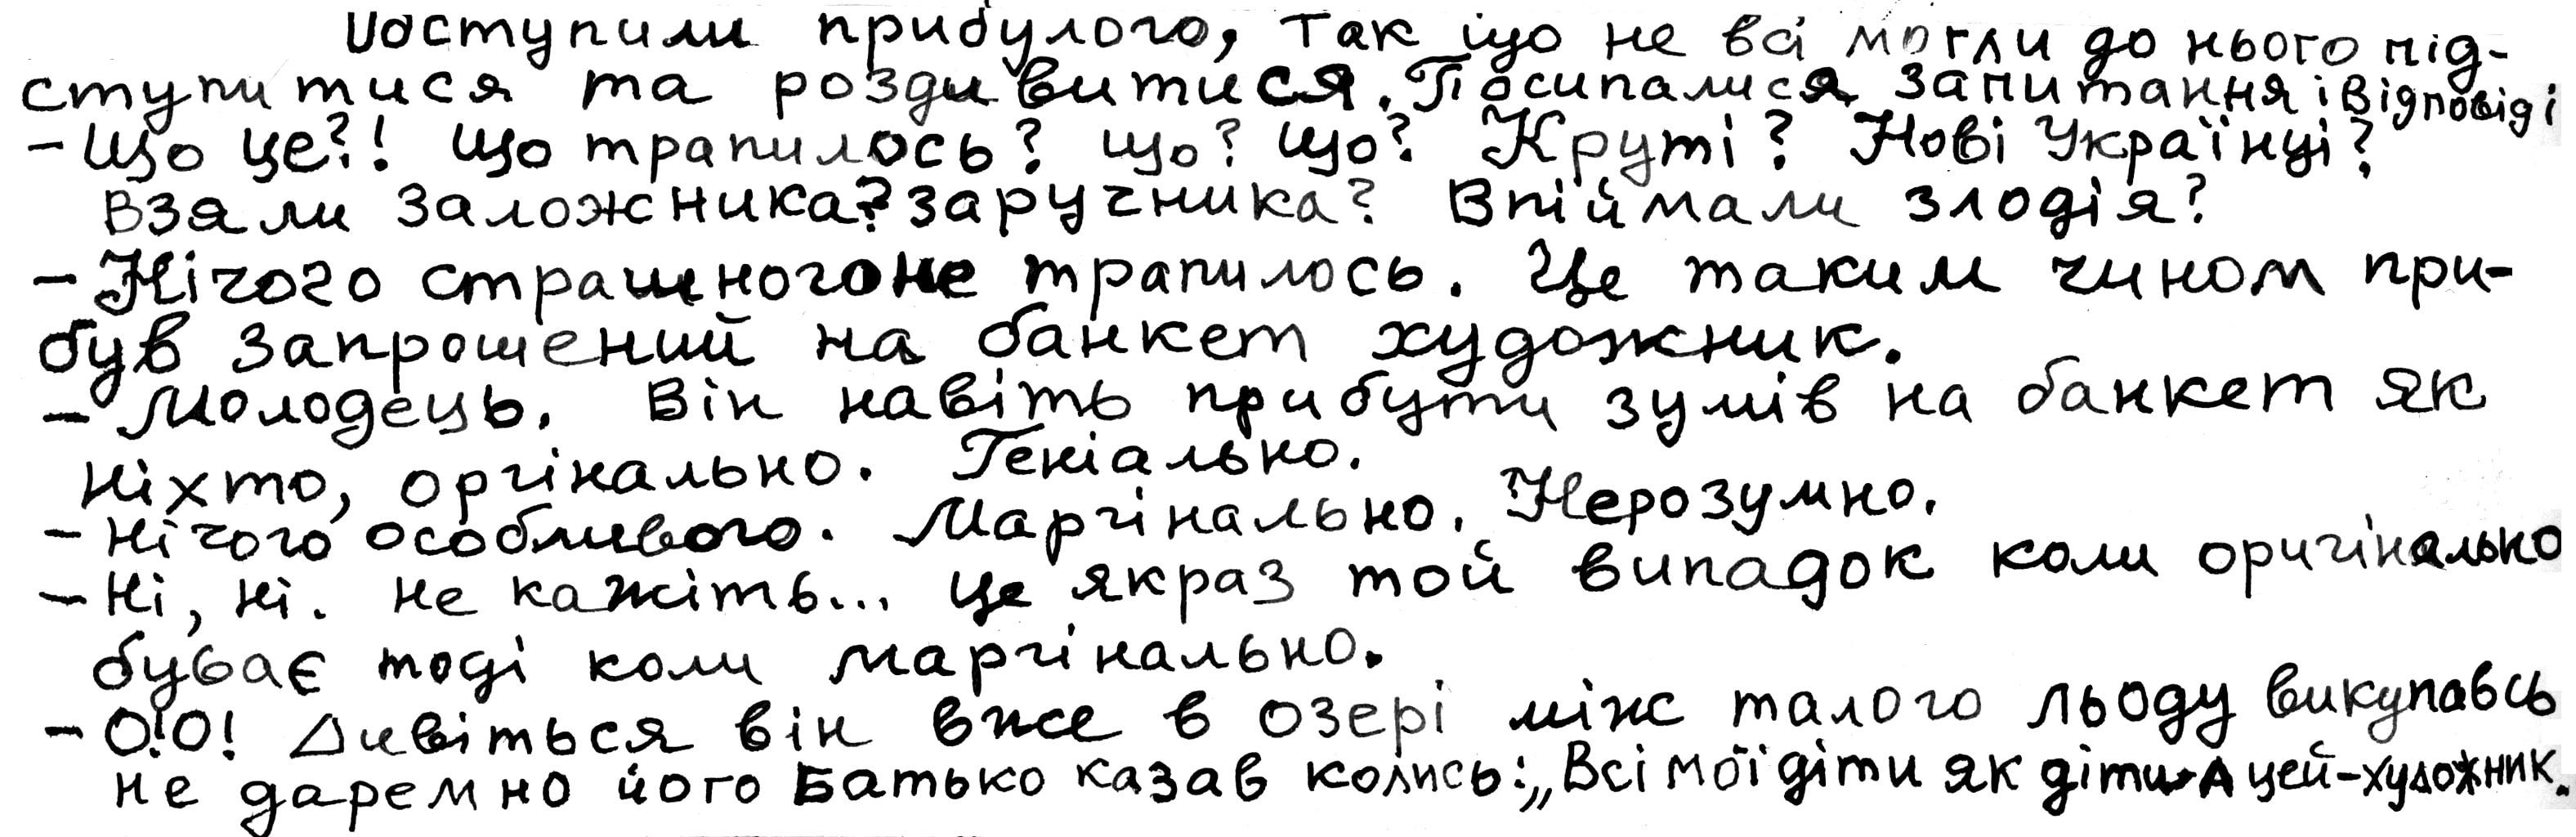 Поступили прибулого, так що не всі могли до нього під-
ступитися та роздивитися. Посипалися запитання і відповіді
- Що це?! Що трапилось? Що? Що? Круті? Нові Українці?
Взяли заложника? заручника? Впіймали злодія?
- Нічого страшного не трапилось. Це таким чином при-
був запрошений на банкет художник.
- Молодець. Він навіть прибути зумів на банкет як
ніхто, оргінально. Геніально.
- Нічого особливого. Маргінально. Нерозумно.
- Ні, ні. Не кажіть... Це якраз той випадок коли оригінально
буває тоді коли маргінально.
- О!О! Дивіться він вже в озері між талого льоду викупавсь
не даремно його Батько казав колись: „Всі мої діти як діти А цей-художник.